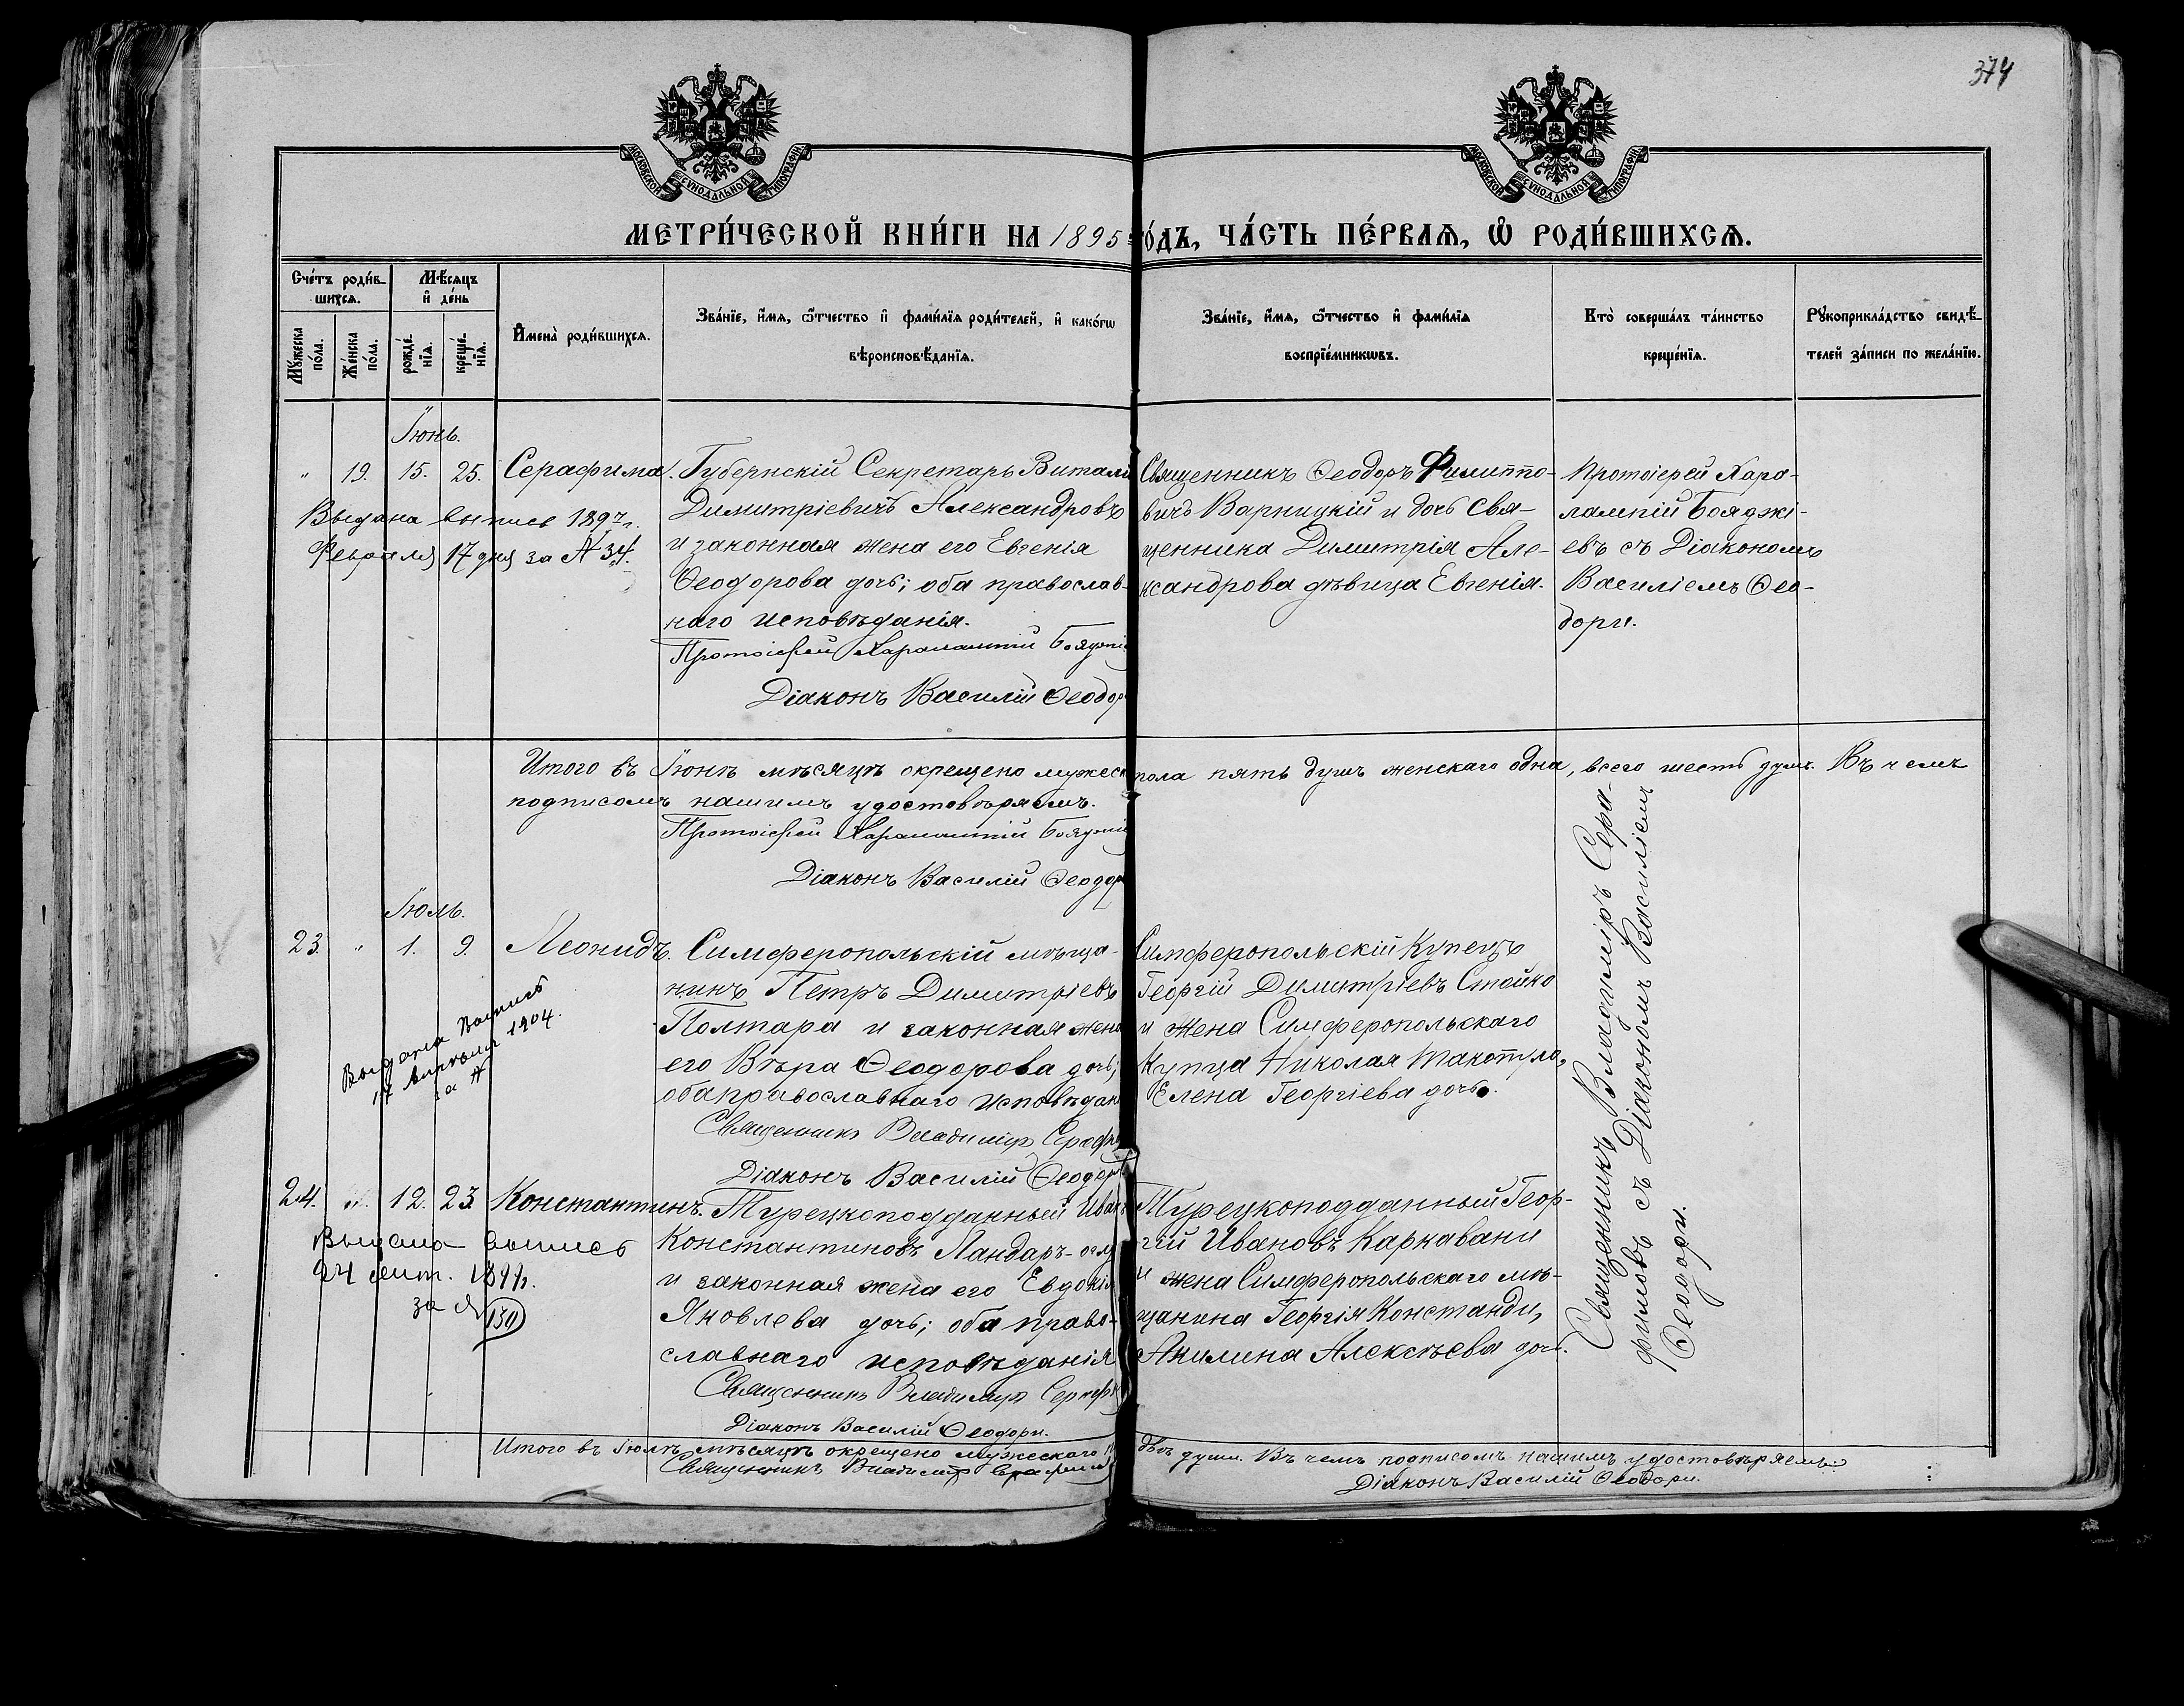 374
МОСКОВСКОЙ СѴНОДАЛЬНОЙ ТИПОГРАФІИ
МОСКОВСКОЙ СѴНОДАЛЬНОЙ ТИПОГРАФІИ
МЕТРИ́ЧЕСКОЙ КНИ́ГИ НА 1895 ГО́ДЪ, ЧА́СТЬ ПЕ́РВАѦ, Ѡ҆ РОДИ́ВШИХСѦ.
Сче́тъ роди́в-
шихсѧ.
Мѣ́сѧцъ
и҆ де́нь
Мꙋ́жеска
по́ла.
Же́нска
по́ла.
рожде́-
нїѧ.
креще́-
нїѧ.
И҆мена̀ роди́вшихсѧ.
Зва́нїе, и҆́мѧ, ѻ҆́тчество и҆ фами́лїѧ роди́телей, и҆ како́гѡ
вѣроисповѣ́данїѧ.
Зва́нїе, и҆́мѧ, ѻ҆́тчество и҆ фами́лїѧ
воспрїе́мникѡвъ.
Кто̀ соверша́лъ та́инство
креще́нїѧ.
Рꙋкоприкла́дство свидѣ́-
телей за́писи по жела́нїю.
Іюнь.
" 19. 15. 25. Серафима.
Выдана выпись 1897 г.
Февраля 17 дня за № 34.
Губернскій Секретарь Витали
Димитріевичъ Александровъ
и законная жена его Евгенія
Ѳеодорова дочь; оба православ-
наго исповѣданія.
Протоіерей Харалампій Бояджі
Діаконъ Василій Ѳеодор
Священникъ Ѳеодоръ Филиппо-
вичъ Варницкій и дочь Свя-
щенника Димитрія Але-
ксандрова дѣвица Евгенія.
Протоіерей Хара-
лампій Бояджі-
евъ съ Діакономъ
Василіемъ Ѳео-
дори.
Итого въ Іюнѣ мѣсяцѣ окрещено мужеск пола пять душъ женскаго одна, всего шесть душъ. Въ чемъ
подписомъ нашимъ удостовѣряемъ.
Протоіерей Харалампій Бояджі
Діаконъ Василій Ѳеодор
Іюль.
23. " 1. 9. Леонидъ.
Выдана Выпись
17 1904.
за №
Симферопольскій мѣща-
нинъ Петръ Димитріевъ
Полтара и законная жена
его Вѣра Ѳеодорова дочь;
оба православнаго исповѣдан
Священникъ Владиміръ Серафи
Діаконъ Василій Ѳеодор
Симферопольскій Купецъ
Георгій Димитріевъ Стойко
и жена Симферопольскаго
Купца Николая
Елена Георгіева дочь.
Священникъ Владиміръ Сера-
фимовъ съ Діакономъ Василіемъ
Ѳеодори.
24. " 12. 23. Константинъ.
Выдана выпись
24 сент.
за № 130
Турецкоподданный Иван
Константиновъ Ландаръ-огл
и законная жена его Евдокія
Яковлева дочь; оба право-
славнаго исповѣданія
Священникъ Владиміръ Серафи
Діаконъ Василій Ѳеодори.
Турецкоподданный Геор-
гій Ивановъ Каркавани
и жена Симферопольскаго мѣ-
щанина Георгія Констанди,
Акилина Алексѣева дочь.
Итого въ Іюлѣ мѣсяцѣ окрещено мужескаго двѣ души. Въ чемъ подписомъ нашимъ удостовѣряемъ:
Священникъ Владиміръ Серафим
Діаконъ Василій Ѳеодори.